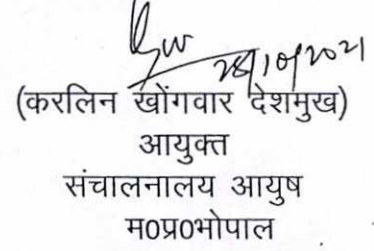 28/10/2021
(करलिन खोंगवार देशमुख)
आयुक्त
संचालनालय आयुष
म0प्र0भोपाल